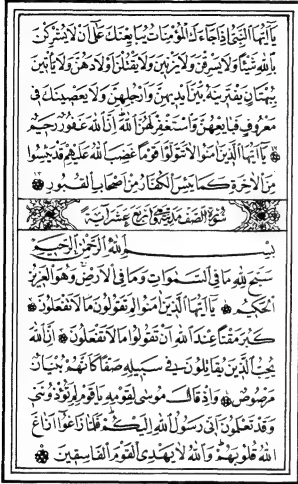 يَا أَيُّهَا النَّبِيُّ إِذَا جَاءَكَ الْمُؤْمِنَاتُ يُبَايِعْنَكَ عَلَى أَنْ لَا يُشْرِكْنَ
بِاللَّهِ شَيْئًا وَلَا يَسْرِقْنَ وَلَا يَزْنِينَ وَلَا يَقْتُلْنَ أَوْلَادَهُنَّ وَلَا يَأْتِينَ
بِبُهْتَانٍ يَفْتَرِينَهُ بَيْنَ أَيْدِيهِنَّ وَأَرْجُلِهِنَّ وَلَا يَعْصِينَكَ فِي
مَعْرُوفٍ فَبَايِعْهُنَّ وَاسْتَغْفِرْ لَهُنَّ اللَّهَ إِنَّ اللَّهَ غَفُورٌ رَحِيمٌ
يَا أَيُّهَا الَّذِينَ آمَنُوا لَا تَتَوَلَّوْا قَوْمًا غَضِبَ اللَّهُ عَلَيْهِمْ قَدْ يَئِسُوا
مِنَ الْآخِرَةِ كَمَا يَئِسَ الْكُفَّارُ مِنْ أَصْحَابِ الْقُبُورِ
سُورَةُ الصَّفِّ مَدَنِيَّةٌ وَهِيَ أَرْبَعَ عَشْرَةَ آيَةً
بِسْمِ اللَّهِ الرَّحْمَنِ الرَّحِيمِ
سَبَّحَ لِلَّهِ مَا فِي السَّمَوَاتِ وَمَا فِي الْأَرْضِ وَهُوَ الْعَزِيزُ
الْحَكِيمُ يَا أَيُّهَا الَّذِينَ آمَنُوا لِمَ تَقُولُونَ مَا لَا تَفْعَلُونَ
كَبُرَ مَقْتًا عِنْدَ اللَّهِ أَنْ تَقُولُوا مَا لَا تَفْعَلُونَ إِنَّ اللَّهَ
يُحِبُّ الَّذِينَ يُقَاتِلُونَ فِي سَبِيلِهِ صَفًّا كَأَنَّهُمْ بُنْيَانٌ
مَرْصُوصٌ وَإِذْ قَالَ مُوسَى لِقَوْمِهِ يَا قَوْمِ لِمَ تُؤْذُونَنِي
وَقَدْ تَعْلَمُونَ أَنِّي رَسُولُ اللَّهِ إِلَيْكُمْ فَلَمَّا زَاغُوا أَزَاغَ
اللَّهُ قُلُوبَهُمْ وَاللَّهُ لَا يَهْدِي الْقَوْمَ الْفَاسِقِينَ